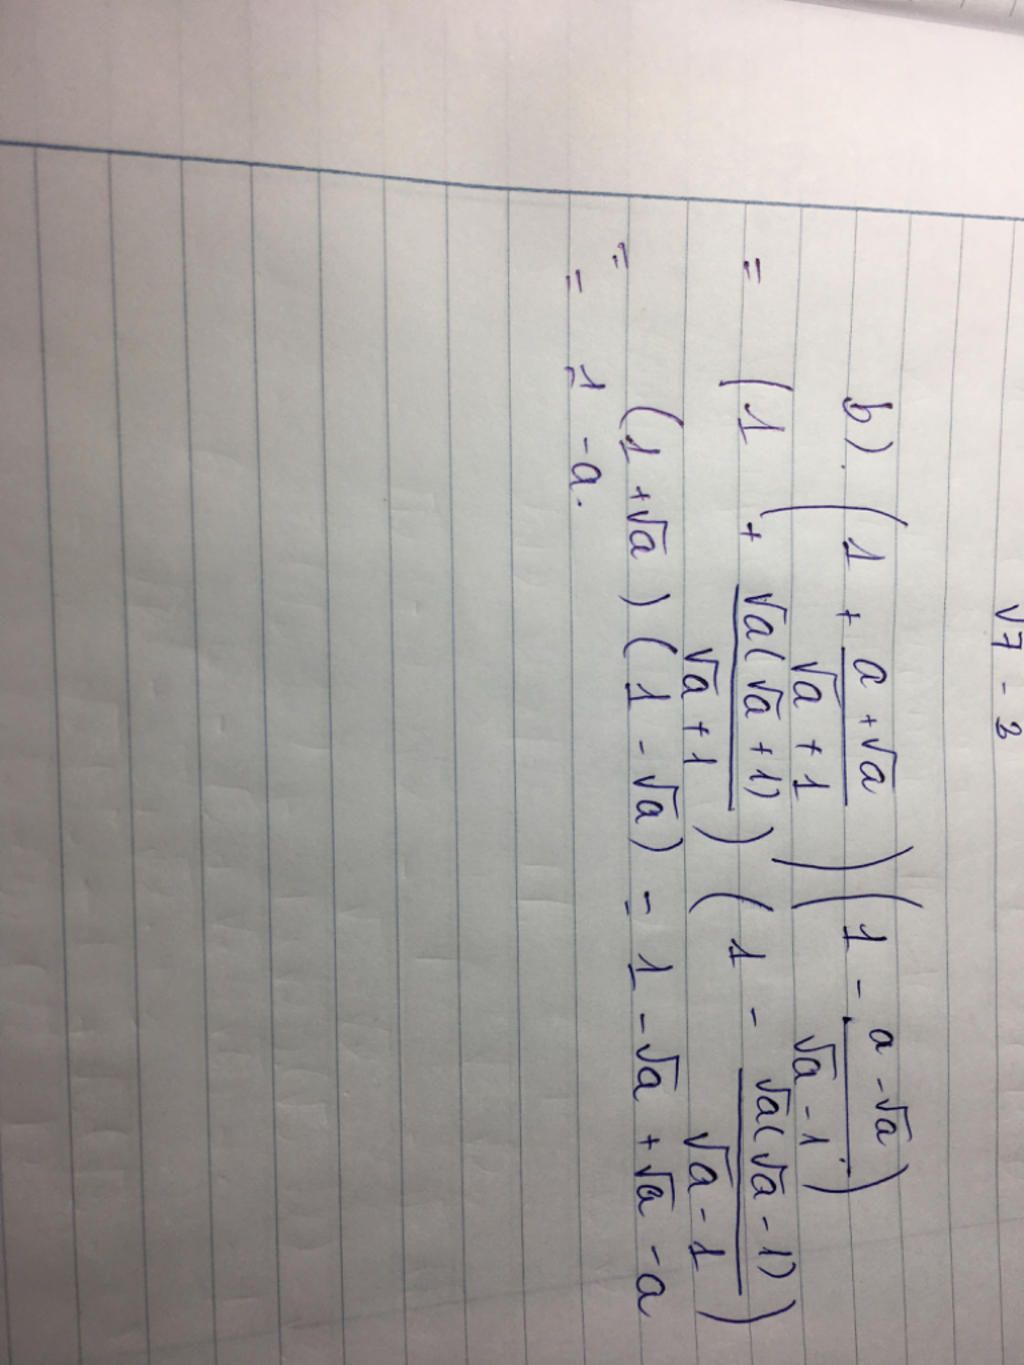 √7 - 2
b). (1 + (a + √a)/(√a + 1))(1 - (a - √a)/(√a - 1))
= (1 + √a(√a + 1)/(√a + 1))(1 - √a(√a - 1)/(√a - 1))
= (1 + √a)(1 - √a) = 1 - √a + √a - a
= 1 - a.